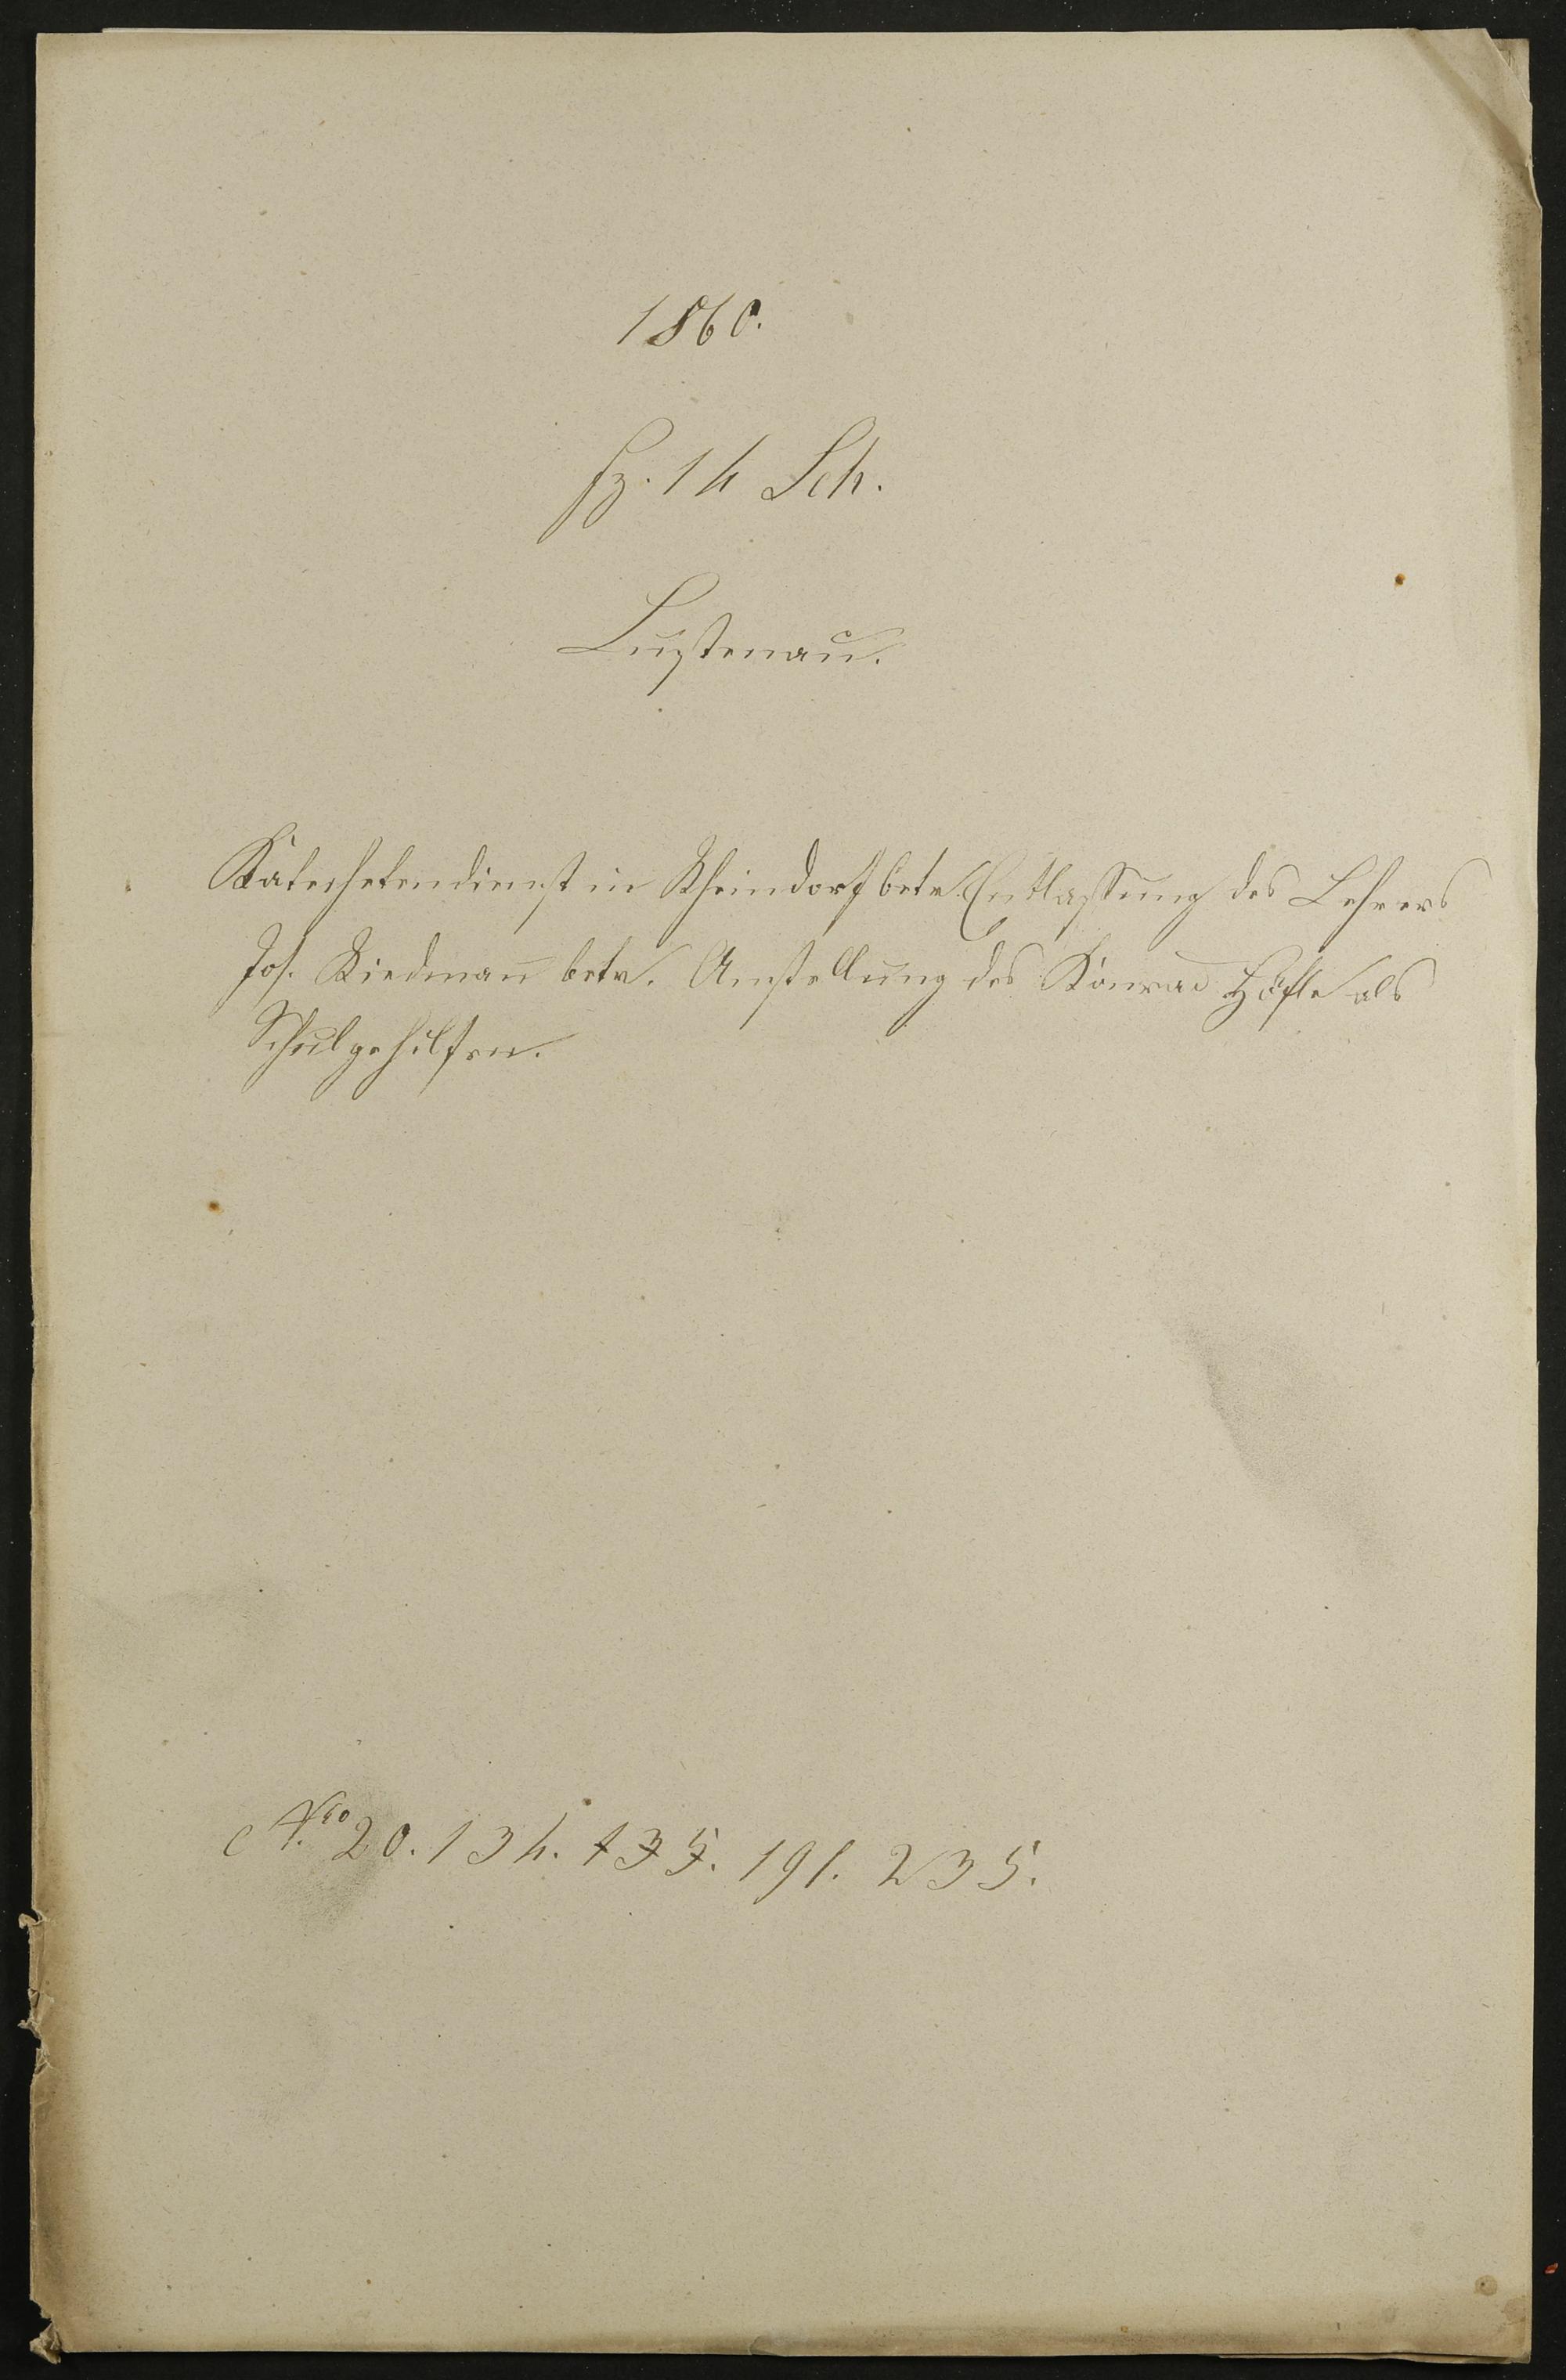 1860.
Fz. 14 Sch.
Lustenau.
Katechetendienst in Rheindorf betr. Entlassung des Lehrers
Jos. Riedmañ betr. Anstellung des Konrad Höfle als
Schulgehilfen.
Nro 20. 134. 135. 191. 235.